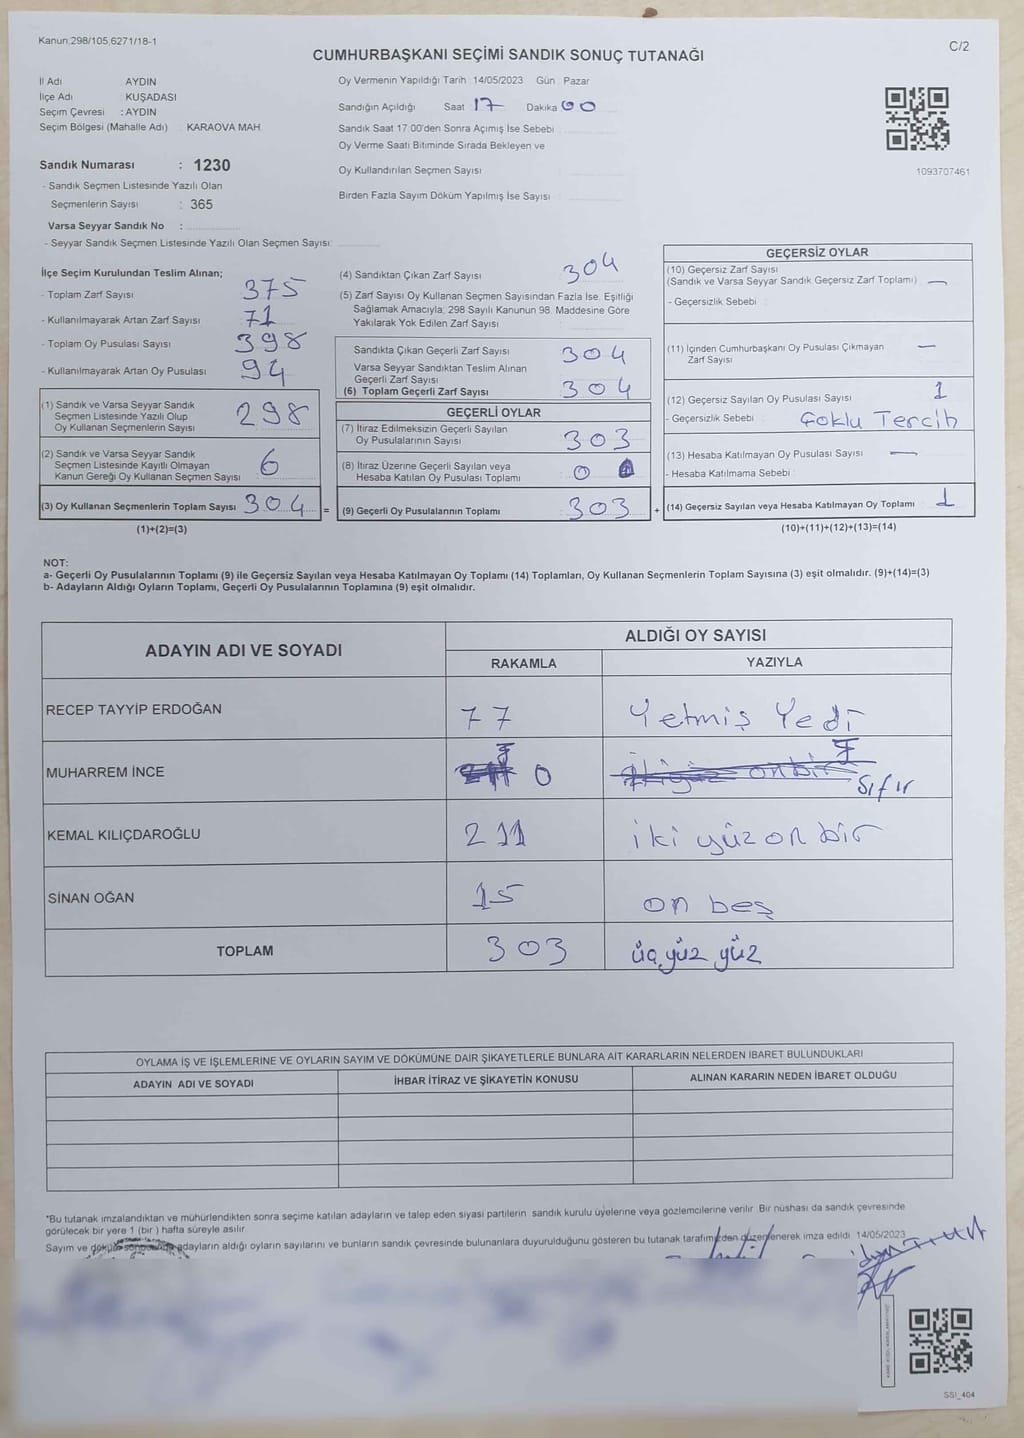 Kanun;298/105;6271/18-1
C/2
CUMHURBAŞKANI SEÇİMİ SANDIK SONUÇ TUTANAĞI
İl Adı AYDIN
İlçe Adı KUŞADASI
Seçim Çevresi : AYDIN
Seçim Bölgesi (Mahalle Adı) KARAOVA MAH.
Sandık Numarası : 1230
- Sandık Seçmen Listesinde Yazılı Olan
Seçmenlerin Sayısı : 365
Varsa Seyyar Sandık No :
- Seyyar Sandık Seçmen Listesinde Yazılı Olan Seçmen Sayısı:
Oy Vermenin Yapıldığı Tarih 14/05/2023 Gün Pazar
Sandığın Açıldığı Saat 17 Dakika 00
Sandık Saat 17:00'den Sonra Açımış İse Sebebi
Oy Verme Saati Bitiminde Sırada Bekleyen ve
Oy Kullandırılan Seçmen Sayısı
Birden Fazla Sayım Döküm Yapılmış İse Sayısı
1093707461
İlçe Seçim Kurulundan Teslim Alınan;
- Toplam Zarf Sayısı 375
- Kullanılmayarak Artan Zarf Sayısı 71
- Toplam Oy Pusulası Sayısı 398
- Kullanılmayarak Artan Oy Pusulası 94
(1) Sandık ve Varsa Seyyar Sandık
Seçmen Listesinde Yazılı Olup
Oy Kullanan Seçmenlerin Sayısı 298
(2) Sandık ve Varsa Seyyar Sandık
Seçmen Listesinde Kayıtlı Olmayan
Kanun Gereği Oy Kullanan Seçmen Sayısı 6
(3) Oy Kullanan Seçmenlerin Toplam Sayısı 304 =
(1)+(2)=(3)
(4) Sandıktan Çıkan Zarf Sayısı 304
(5) Zarf Sayısı Oy Kullanan Seçmen Sayısından Fazla İse, Eşitliği
Sağlamak Amacıyla; 298 Sayılı Kanunun 98. Maddesine Göre
Yakılarak Yok Edilen Zarf Sayısı
Sandıkta Çıkan Geçerli Zarf Sayısı 304
Varsa Seyyar Sandıktan Teslim Alınan
Geçerli Zarf Sayısı
(6) Toplam Geçerli Zarf Sayısı 304
GEÇERLİ OYLAR
(7) İtiraz Edilmeksizin Geçerli Sayılan
Oy Pusulalarının Sayısı 303
(8) İtiraz Üzerine Geçerli Sayılan veya
Hesaba Katılan Oy Pusulası Toplamı 0
(9) Geçerli Oy Pusulalarının Toplamı 303 +
GEÇERSİZ OYLAR
(10) Geçersiz Zarf Sayısı
(Sandık ve Varsa Seyyar Sandık Geçersiz Zarf Toplamı) —
- Geçersizlik Sebebi
(11) İçinden Cumhurbaşkanı Oy Pusulası Çıkmayan —
Zarf Sayısı
(12) Geçersiz Sayılan Oy Pusulası Sayısı 1
- Geçersizlik Sebebi Çoklu Tercih
(13) Hesaba Katılmayan Oy Pusulası Sayısı —
- Hesaba Katılmama Sebebi
(14) Geçersiz Sayılan veya Hesaba Katılmayan Oy Toplamı 1
(10)+(11)+(12)+(13)=(14)
NOT:
a- Geçerli Oy Pusulalarının Toplamı (9) ile Geçersiz Sayılan veya Hesaba Katılmayan Oy Toplamı (14) Toplamları, Oy Kullanan Seçmenlerin Toplam Sayısına (3) eşit olmalıdır. (9)+(14)=(3)
b- Adayların Aldığı Oyların Toplamı, Geçerli Oy Pusulalarının Toplamına (9) eşit olmalıdır.
ADAYIN ADI VE SOYADI ALDIĞI OY SAYISI
RAKAMLA YAZIYLA
RECEP TAYYİP ERDOĞAN 77 Yetmiş Yedi
MUHARREM İNCE 0 Sıfır
KEMAL KILIÇDAROĞLU 211 iki yüz on bir
SİNAN OĞAN 15 on beş
TOPLAM 303 üçyüz yüz
OYLAMA İŞ VE İŞLEMLERİNE VE OYLARIN SAYIM VE DÖKÜMÜNE DAİR ŞİKAYETLERLE BUNLARA AİT KARARLARIN NELERDEN İBARET BULUNDUKLARI
ADAYIN ADI VE SOYADI İHBAR İTİRAZ VE ŞİKAYETİN KONUSU ALINAN KARARIN NEDEN İBARET OLDUĞU
*Bu tutanak imzalandıktan ve mühürlendikten sonra seçime katılan adayların ve talep eden siyasi partilerin sandık kurulu üyelerine veya gözlemcilerine verilir. Bir nüshası da sandık çevresinde
görülecek bir yere 1 (bir) hafta süreyle asılır.
Sayım ve döküm sonucunda adayların aldığı oyların sayılarını ve bunların sandık çevresinde bulunanlara duyurulduğunu gösteren bu tutanak tarafımızdan düzenlenerek imza edildi. 14/05/2023
SSI_404